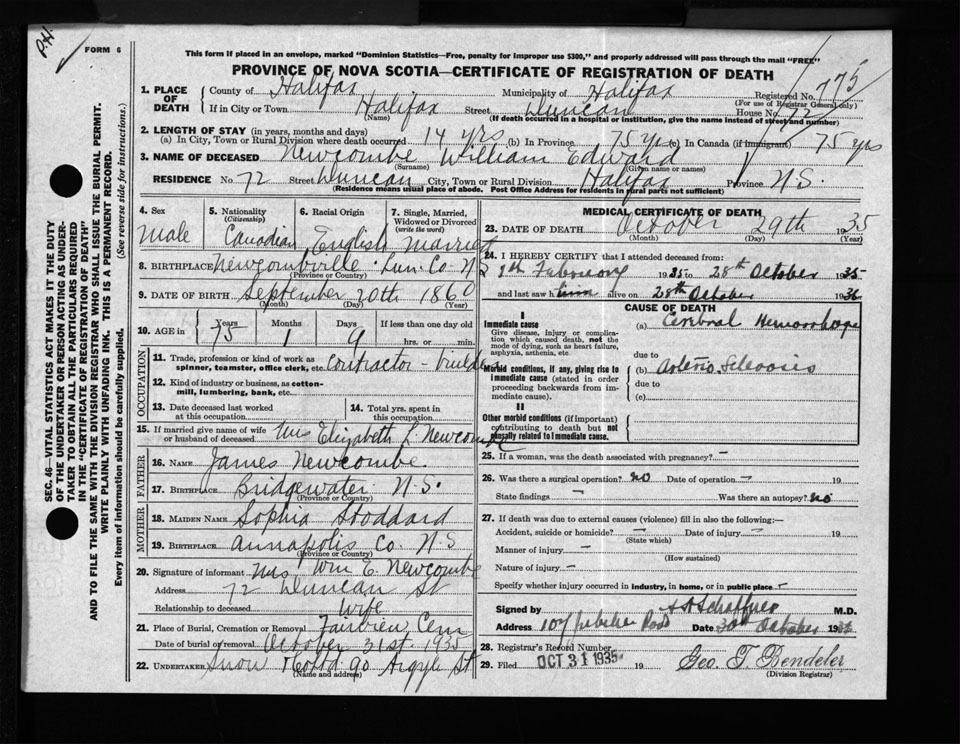 P.H.
FORM 6
This form if placed in an envelope, marked "Dominion Statistics—Free, penalty for improper use $300," and properly addressed will pass through the mail "FREE"
PROVINCE OF NOVA SCOTIA—CERTIFICATE OF REGISTRATION OF DEATH
SEC. 46—VITAL STATISTICS ACT MAKES IT THE DUTY
OF THE UNDERTAKER OR PERSON ACTING AS UNDER-
TAKER TO OBTAIN ALL THE PARTICULARS REQUIRED
IN THE "CERTIFICATE OF REGISTRATION OF DEATH"
AND TO FILE THE SAME WITH THE DIVISION REGISTRAR WHO SHALL ISSUE THE BURIAL PERMIT.
WRITE PLAINLY WITH UNFADING INK. THIS IS A PERMANENT RECORD.
Every item of information should be carefully supplied. (See reverse side for instructions.)
1. PLACE OF DEATH County of Halifax Municipality of Halifax Registered No. 775
(For use of Registrar General only)
If in City or Town Halifax Street Duncan House No. 72
(Name) (If death occurred in a hospital or institution, give the name instead of street and number)
2. LENGTH OF STAY (in years, months and days)
(a) In City, Town or Rural Division where death occurred 14 yrs (b) In Province 75 yrs (c) In Canada (if immigrant) 75 yrs
3. NAME OF DECEASED Newcombe William Edward
(Surname) (Given name or names)
RESIDENCE No 72 Street Duncan City, Town or Rural Division Halifax Province N.S.
(Residence means usual place of abode. Post Office Address for residents in rural parts not sufficient)
4. Sex 5. Nationality (Citizenship) 6. Racial Origin 7. Single, Married, Widowed or Divorced (write the word)
Male Canadian English Married
8. BIRTHPLACE Newcombville Lun. Co. N.S
(Province or Country)
9. DATE OF BIRTH September 20th 1860
(Month) (Day) (Year)
10. AGE in Years Months Days If less than one day old
75 1 9 hrs. or min.
OCCUPATION
11. Trade, profession or kind of work as spinner, teamster, office clerk, etc. Contractor - Builder
12. Kind of industry or business, as cotton-mill, lumbering, bank, etc.
13. Date deceased last worked at this occupation 14. Total yrs. spent in this occupation
15. If married give name of wife or husband of deceased Mrs Elizabeth L Newcombe
FATHER
16. NAME James Newcombe
17. BIRTHPLACE Bridgewater N.S.
(Province or Country)
MOTHER
18. MAIDEN NAME Sophia Stoddard
19. BIRTHPLACE Annapolis Co. N.S
(Province or Country)
20. Signature of informant Mrs Wm E. Newcombe
Address 72 Duncan St
Relationship to deceased Wife
21. Place of Burial, Cremation or Removal Fairview Cem
Date of burial or removal October 31st 1935
22. UNDERTAKER Snow & Co Ltd 90 Argyle St
(Name and address)
MEDICAL CERTIFICATE OF DEATH
23. DATE OF DEATH October 29th 1935
(Month) (Day) (Year)
24. I HEREBY CERTIFY that I attended deceased from:
February 1935 to 28th October 1935
and last saw him alive on 28th October 193
CAUSE OF DEATH
I
Immediate cause (a) Cerebral Hemorrhage
Give disease, injury or complication which caused death, not the mode of dying, such as heart failure, asphyxia, asthenia, etc.
due to
Morbid conditions, if any, giving rise to immediate cause (stated in order proceeding backwards from immediate cause). (b) Arterio Sclerosis
due to
(c)
II
Other morbid conditions (if important) contributing to death but not causally related to immediate cause.
25. If a woman, was the death associated with pregnancy? –
26. Was there a surgical operation? no Date of operation – 19
State findings – Was there an autopsy? no
27. If death was due to external causes (violence) fill in also the following:—
Accident, suicide or homicide? – Date of injury – 19
(State which)
Manner of injury –
(How sustained)
Nature of injury –
Specify whether injury occurred in industry, in home, or in public place –
Signed by A R Schaffner M.D.
Address 107 Jubilee Road Date 30th October 193
28. Registrar's Record Number
29. Filed OCT 31 1935 19 Geo. T. Bendeler
(Division Registrar)